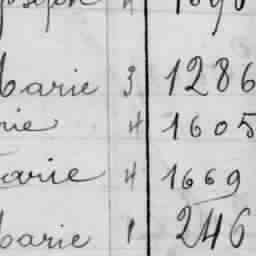 Marie 3 1286
rie 4 1605
Marie 4 1669
Marie 1 246